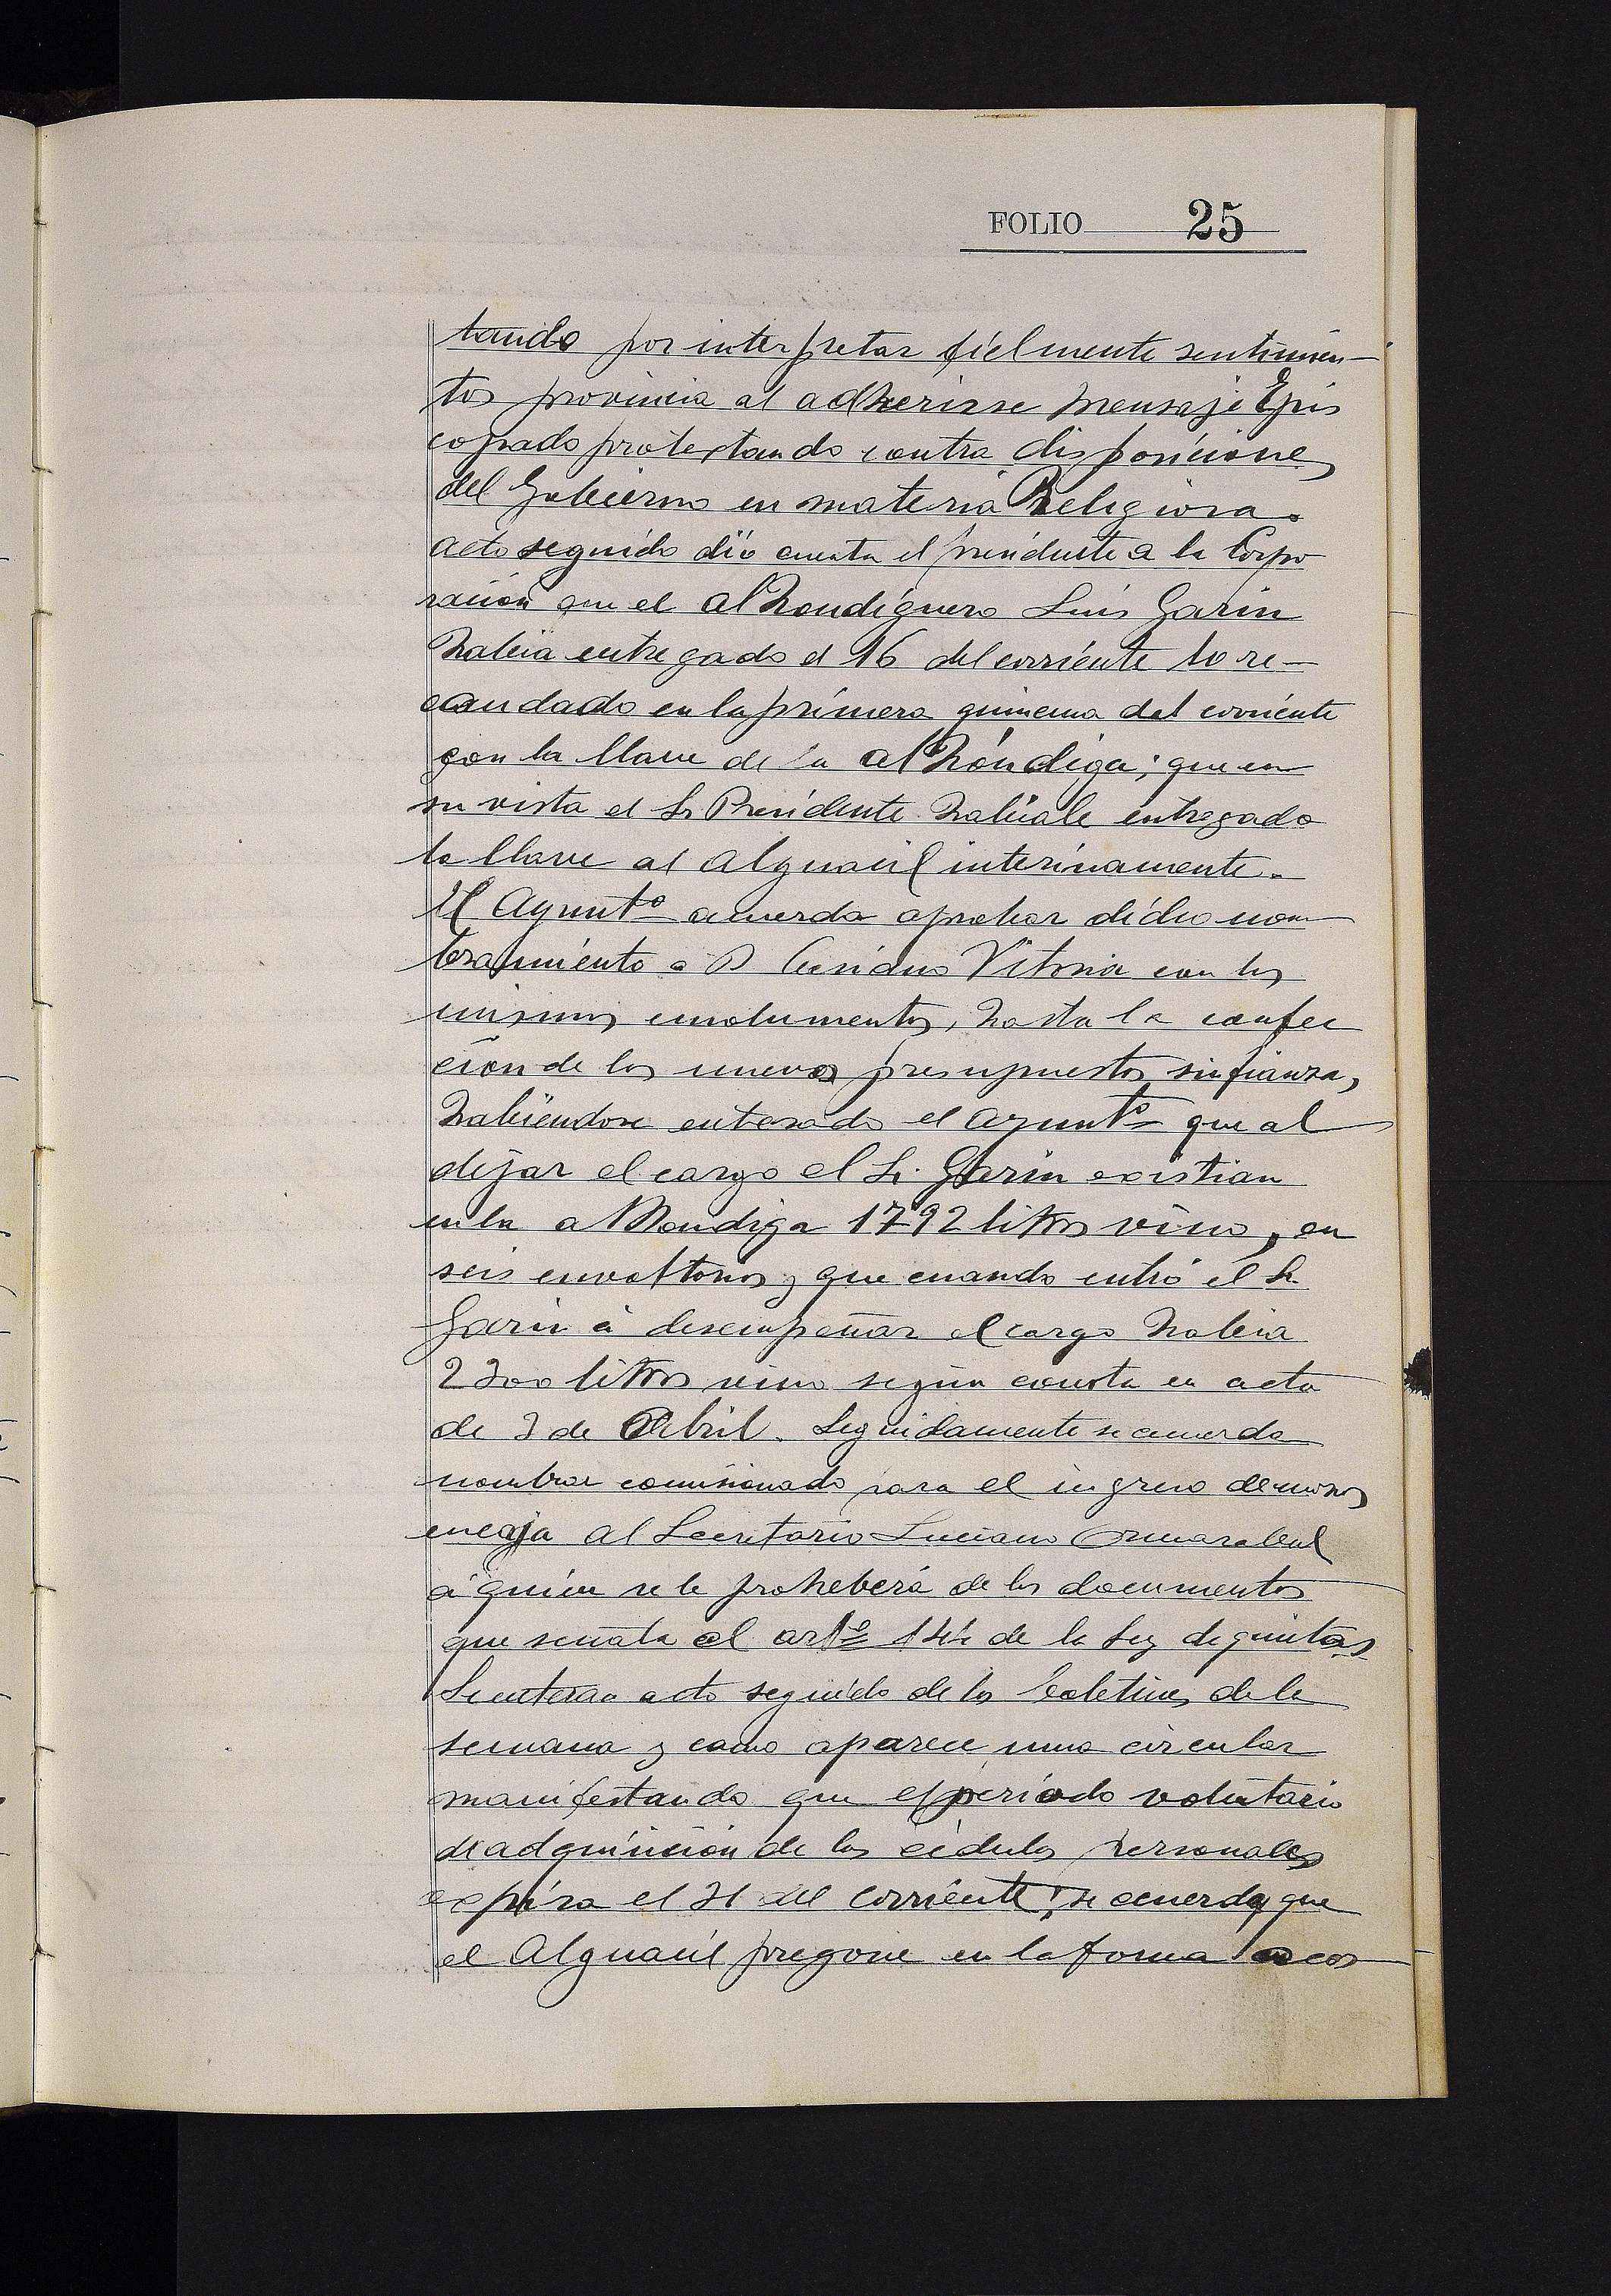 FOLIO 25
tando por interpretar fielmente sentimien-
tos provincia al adherirse mensaje Epis
copado protestando contra disposiciones
del Gobierno en materia Religiosa.
acto seguido dió cuenta el presidente a la Corpo
ración que el alhondiguero Luis Garin
habia entregado el 16 del corriente lo re-
caudado en la primera quincena del corriente
con la llave de la alhóndiga; que en
su vista el Sr Presidente habiale entregado
la llave al Alguacil interinamente.
El Ayuntº acuerda aprobar dicho nom
bramiento a D Vitoria con los
mismos emolumentos, hasta la confec
ción de los nuevos presupuestos sin fianza,
habiendose enterado el ayuntº que al
dejar el cargo el Sr. Garin existian
en la alhondiga 1792 litros vino, en
seis envoltorios y que cuando entró el Sr
Garin á desempeñar el cargo habia
2300 litros vino según consta en acta
de 3 de Abril. Seguidamente se acuerda
nombrar comisionado para el ingreso de mozos
en caja al Secretario Luciano Ormazabal
á quien se le proheberá de los documentos
que señala el artº 144 de la Ley de quintas
Se enteran acto seguido de los boletines de la
semana y como aparece una circular
manifestando que el periodo voluntario
de adquisición de las cédulas personales
expira el 31 del corriente, se acuerda que
el Alguacil pregone en la forma acos